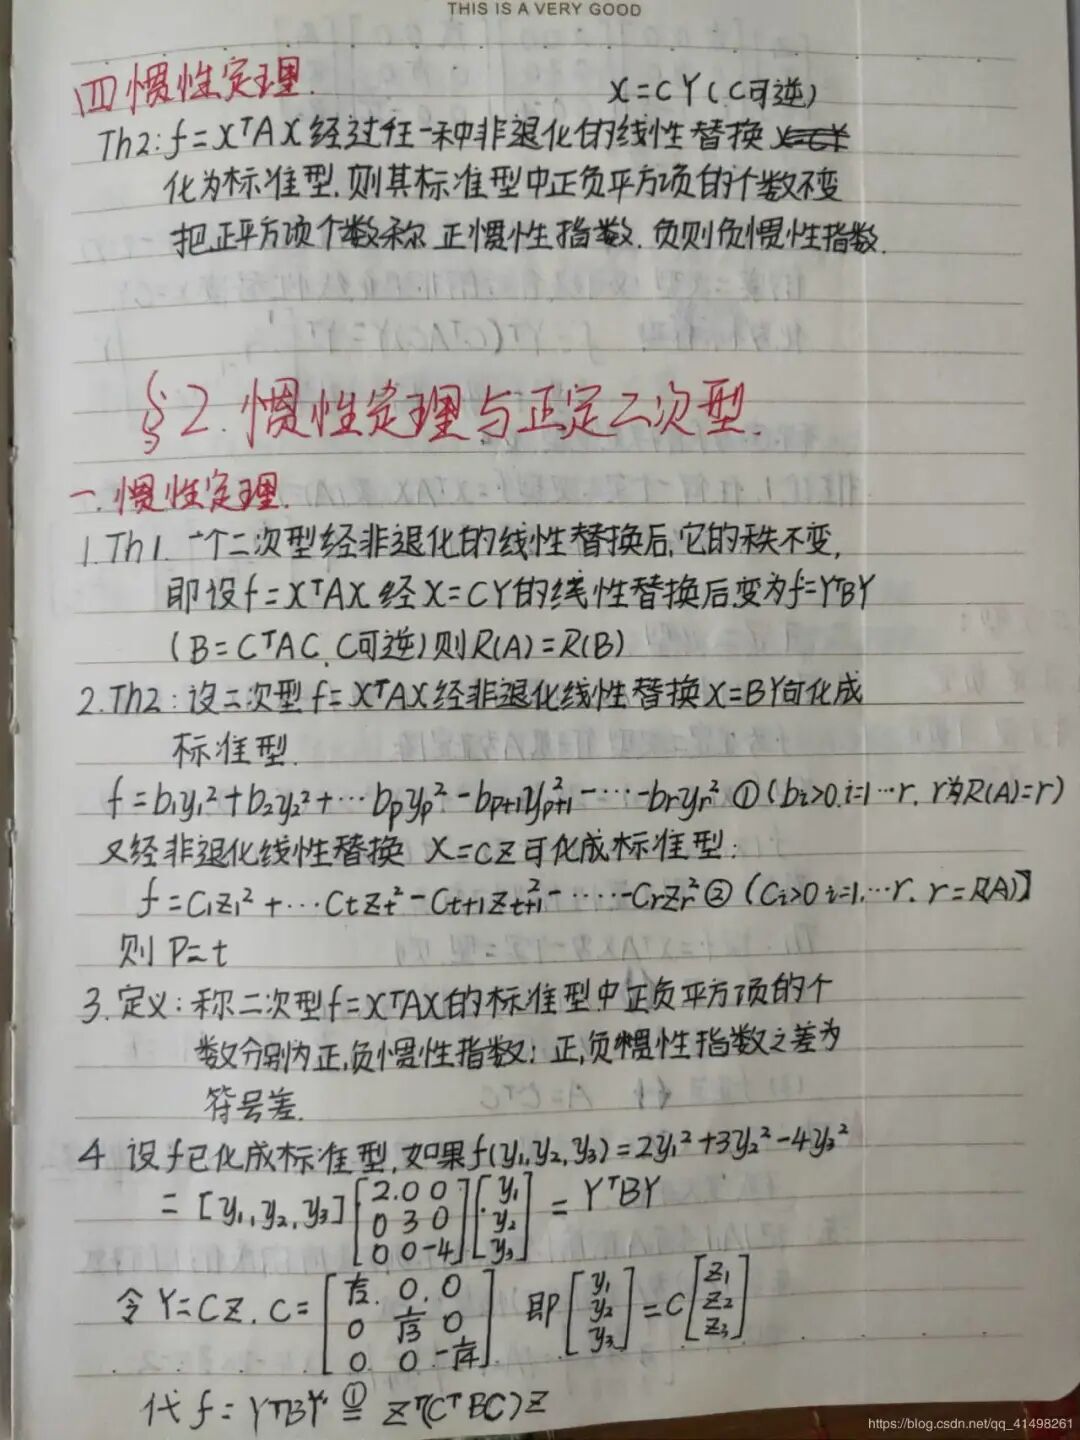 THIS IS A VERY GOOD
(四)惯性定理.
X=CY(C可逆)
Th2:f=XᵀAX经过任一种非退化的线性替换
化为标准型.则其标准型中正负平方项的个数不变
把正平方项个数称 正惯性指数.负则负惯性指数.
§2.惯性定理与正定二次型.
一.惯性定理.
1.Th1.一个二次型经非退化的线性替换后,它的秩不变,
即设f=XᵀAX经X=CY的线性替换后变为f=YᵀBY
(B=CᵀAC,C可逆)则R(A)=R(B)
2.Th2:设二次型f=XᵀAX经非退化线性替换X=BY可化成
标准型.
f=b₁y₁²+b₂y₂²+…bₚyₚ²-bₚ₊₁yₚ₊₁²-…-bᵣyᵣ² ①(bᵢ>0.i=1…r.r为R(A)=r)
又经非退化线性替换 X=CZ可化成标准型:
f=C₁z₁²+…Cₜzₜ²-Cₜ₊₁zₜ₊₁²-……-Cᵣzᵣ² ②(Cᵢ>0 i=1.…r. r=R(A))
则P=t
3.定义:称二次型f=XᵀAX的标准型中正负平方项的个
数分别为正,负惯性指数;正,负惯性指数之差为
符号差.
4 设f已化成标准型,如果f(y₁,y₂,y₃)=2y₁²+3y₂²-4y₃²
=[y₁,y₂,y₃][2 0 0; 0 3 0; 0 0 -4][y₁; y₂; y₃]=YᵀBY
令Y=CZ.C=[1/√2 0 0; 0 1/√3 0; 0 0 -1/√4] 即[y₁; y₂; y₃]=C[z₁; z₂; z₃]
代f=YᵀBY ①= Zᵀ(CᵀBC)Z
https://blog.csdn.net/qq_41498261